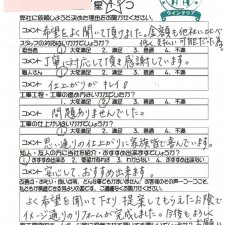 星 5つ
弊社に依頼しようと決めた理由をお聞かせください。
コメント 希望をよく聞いて下りました。金額も他社に比べ
スタッフの対応はいかがでしたか？ 他く支払い可能だった為
担当者 ① 大変満足 2. 満足 3. 普通 4. 不満
コメント 丁寧に対応して頂き感謝しています。
職人さん ① 大変満足 2. 満足 3. 普通 4. 不満
コメント 仕上がりがキレイ
工事工程・工事の進め方はいかがでしたか？
① 大変満足 2. 満足 3. 普通 4. 不満
コメント 問題ありませんでした。
工事の仕上がりはいかがでしたか？
① 大変満足 2. 満足 3. 普通 4. 不満
コメント 思い通りの仕上がりに家族皆で喜んでいます。
知人・友人の方に当社を紹介・おすすめ出来ますか？
① おすすめ出来る 3. わからない 4. おすすめ出来ない
コメント 安心して、おすすめ出来ます。
よく希望を聞いて下さり 提案してもらえたお陰で
イメージ通りのリフォームが完成しました。今後もよろしく